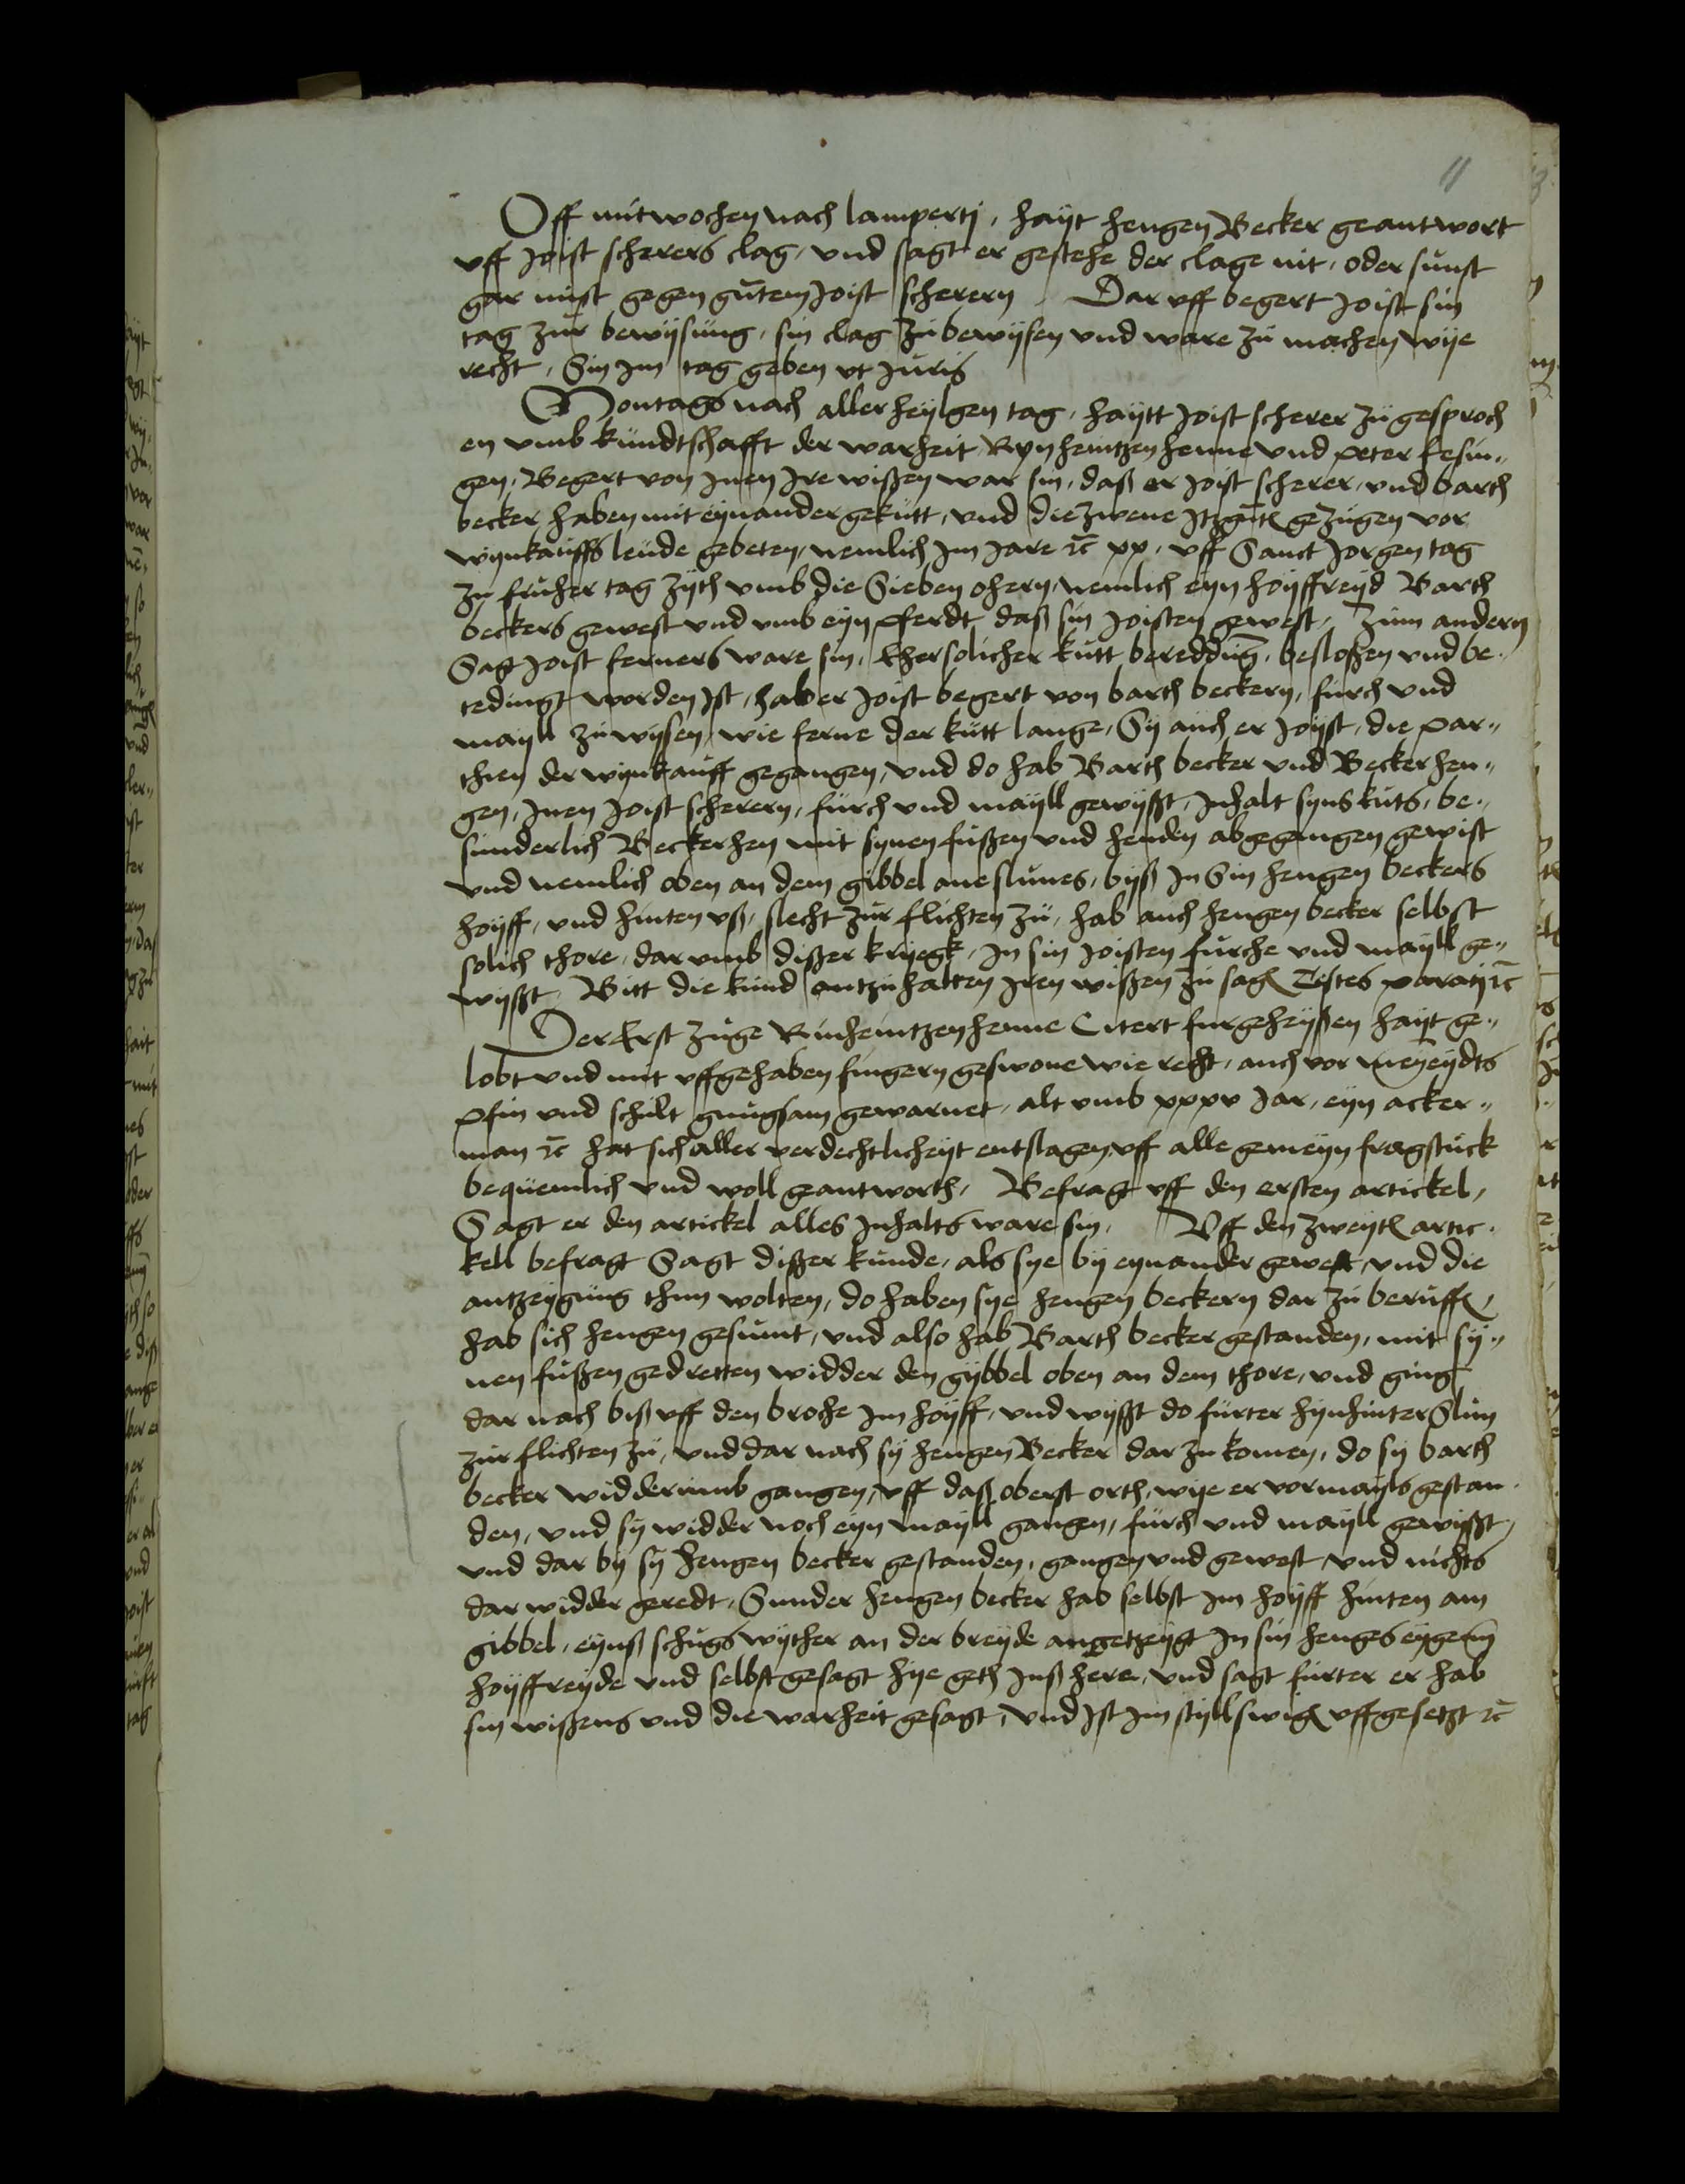 11
Off mitwochen nach lamperti, hayt hengen Becker geantwort
vff Joist scherers clag, vnd sagt er gestehe der clage nit, oder sunst
gar nüst gegen gutem Joist scherern. Dar vff begert Joist sin
tag zur bewysung, sin clag zu bewysen vnd ware zu machen wye
recht, Sin jm tag geben vt juris
Montags nach aller heylgen tag, haytt Joist scherer zu gesproch
en vmb kundtschafft der warheit Ryn heintzen henne vnd peter sesin„
gen, Begert von jnen jre wißen war sin, daß er Joist scherer, vnd barth
becker haben mit eynander gekutt, vnd die zwene gezugen vor
wynkauffs leude gebeten, nemlich jm jare xx, vff Sanct Jorgen tag
zu fruher tag zyth vmb die Sieben ohern, nemlich eyn hoyffreyd Barth
beckers gewest vnd vmb eyn pferdt daß sin Joisten gewest, Zum andern
Sag Joist ferners ware sin, Eher solicher kutt bereddung, besloßen vnd be„
tedingt worden jst, hab er Joist begert von barth beckern, furch vnd
mayll zu wysen, wie ferne der kutt lange, Sy auch er Joyst, die par„
thien der wynkauff gegangen, vnd do hab Barth becker vnd Becker hen„
gen, jnen Joist scherern, furch vnd mayll gewyßt, jnhalt syns kuts, be„
sunderlich Becker hen mit synen fußen vnd henden abgegangen gewist
vnd nemlich oben an dem gibbel ane slunes, byß jn Sin hengen beckers
hoyff, vnd hinten vß, slecht zur flichten zu, hab auch hengen becker selbst
solich thore, dar vmb dißer kryegk, jn sin Joisten furche vnd mayll ge„
wyßt, Bitt die kund antzuhalten jren wißen zu sagen Testes parati
Der Erst zuge Rinheintzen henne Citert furgeheyßen hayt ge„
lobt vnd mit vffgehaben fingern geswone wie recht, auch vor meyneydts
pfin vnd schult gnugsam gewarnet, alt vmb xxxv jar, eyn acker„
man hat sich aller verdechtlicheyt entslagen, vff alle gemeyn fragstuck
bequemlich vnd woll geantworth, Befragt vff den ersten artickel,
Sagt er den artickel alles jnhalts ware sin, Vff den zweyten artic„
kell befragt Sagt dißer kunde, als sye by eynander gewest, vnd die
antzeygung thun wolten, do haben sye hengen beckern dar zu beruffen,
hab sich hengen gesumt, vnd also hab Barth becker gestanden, mit sy„
nen fußen gedretten widder den gybbel oben an dem thore, vnd ging
dar nach biß vff den broche jm hoyff, vnd wyßt do furter hyn hinter Slun
zur flichten zu, vnd dar nach sy hengen Becker dar zu komen, do sy barth
becker widderumb gangen, vff daß oberst orth, wye er vormayls gestan„
den, vnd sy widder noch eyn mayll gangen, furch vnd mayll gewyßt,
vnd dar by sy hengen becker gestanden, gangen vnd gewest, vnd nichts
dar widder geredt, Sunder hengen becker hab selbst jm hoyff hinten am
gibbel, eynß schugs wyther an der breyde angetzeygt jn sin henges eygenn
hoyffreyde vnd selbst gesagt hye geth jnß here, vnd sagt furter er hab
sin wißens vnd die warheit gesagt, vnd jst jm styllswigen vffgesetzt